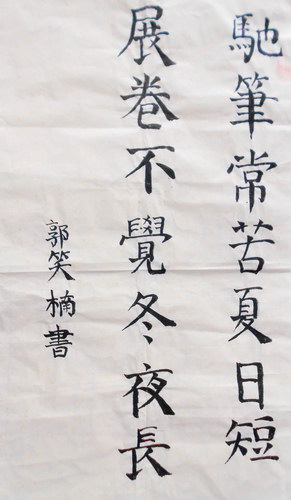 馳筆常苦夏日短
展卷不覺冬夜長
郭笑楠書